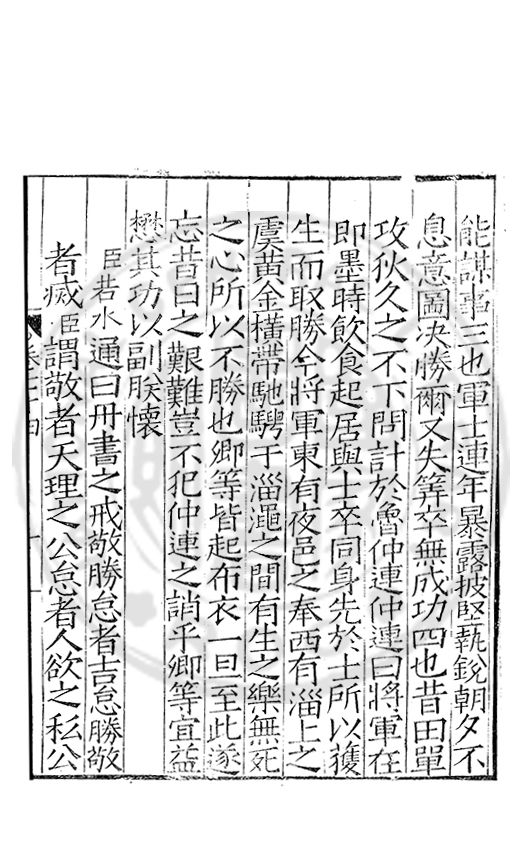 能謀事三也軍士連年暴露披堅執銳朝夕不
息意圖決勝爾又失筭卒無成功四也昔田單
攻狄久之不下問計於魯仲連仲連曰將軍在
即墨時飲食起居與士卒同身先於士所以獲
生而取勝今將軍東有夜邑之奉西有淄上之
虞黃金橫帶馳騁于淄澠之間有生之樂無死
之心所以不勝也卿等皆起布衣一旦至此遂
忘昔日之艱難豈不犯仲連之誚乎卿等宜益
懋其功以副朕懷
臣若水通曰丹書之戒敬勝怠者吉怠勝敬
者滅臣謂敬者天理之公怠者人欲之私公